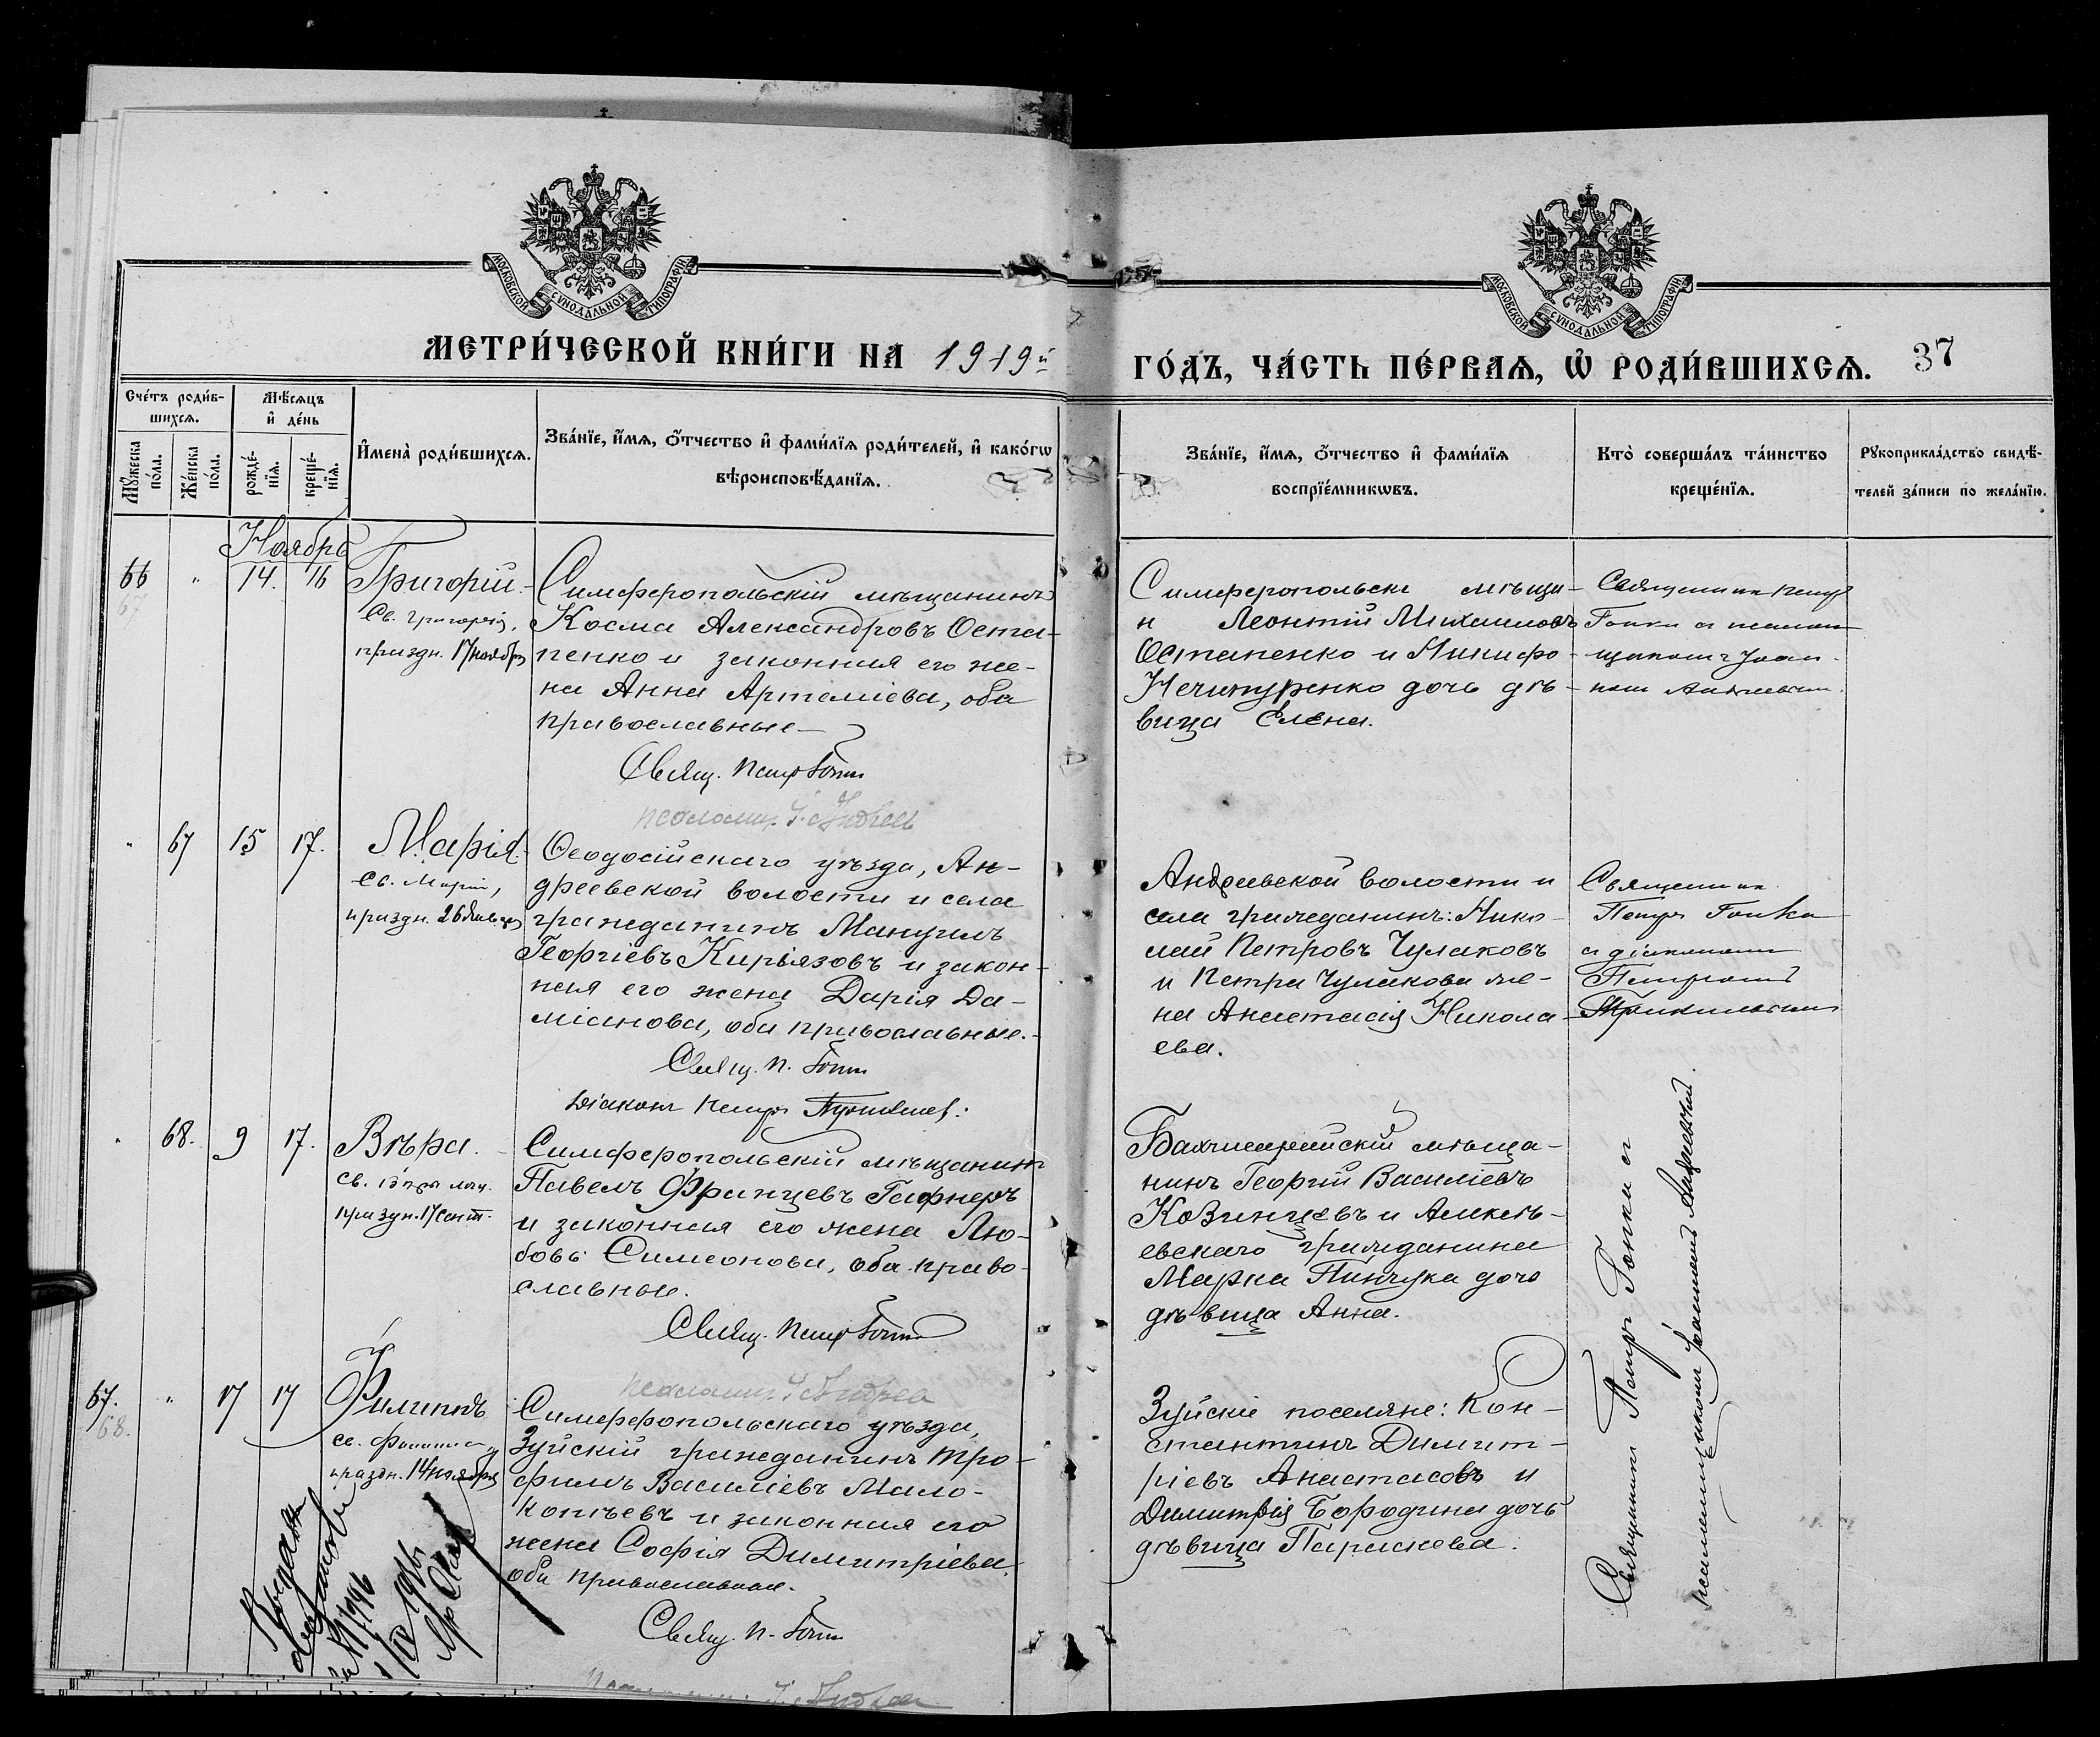 МОСКОВСКОЙ СѴНОДАЛЬНОЙ ТИПОГРАФІИ
МОСКОВСКОЙ СѴНОДАЛЬНОЙ ТИПОГРАФІИ
МЕТРИ́ЧЕСКОЙ КНИ́ГИ НА 1919й ГО́ДЪ, ЧА́СТЬ ПЕ́РВАѦ, Ѡ РОДИ́ВШИХСѦ. 37
Сче́тъ роди́в-
шихсѧ.
Мѣ́сѧцъ
и҆ де́нь
Мꙋ́жеска
по́ла.
Же́нска
по́ла.
рожде́-
нїѧ.
креще́-
нїѧ.
И҆мена̀ роди́вшихсѧ.
Зва́нїе, и҆́мѧ, ѻ҆́тчество и҆ фами́лїѧ роди́телей, и҆ како́гѡ
вѣроисповѣ́данїѧ.
Зва́нїе, и҆́мѧ, ѻ҆́тчество и҆ фами́лїѧ
воспрїе́мникѡвъ.
Кто̀ соверша́лъ та́инство
креще́нїѧ.
Рꙋкоприкла́дство свидѣ́-
телей за́писи по жела́нїю.
Ноябрь
66 " 14. 16
67
Григорій.
Св. Григорія,
праздн. 17 ноября
Симферопольскій мѣщанинъ
Косма Александровъ Оста-
пенко и законная его же-
на Анна Артеміева, оба
православные
Свящ. Петр Гопка
псаломщ. І. Андрее
Симферопольск мѣща-
н Леонтій Михаиловъ
Остапенко и Никифо-
Нечипуренко дочь дѣ-
вица Елена.
Священник Петр
Гопка с псалом-
щиком Іоан-
ном
" 67 15 17.
Марія.
Св. Маріи,
праздн. 26 Января
Ѳеодосійскаго уѣзда, Ан-
дреевской волости и села
гражданинъ Мануилъ
Георгіевъ Кирьязовъ и закон-
ная его жена Дарія Да-
міанова, оба православные.
Свящ. П. Гопка
Діаконъ Петръ
Андреевской волости и
села гражданинъ: Нико-
лай Петровъ Чулаковъ
и Петра Чулакова же-
на Анастасія Никола-
ева.
Священник
Петръ Гопка
с діакономъ
Петромъ
" 68. 9 17.
Вѣра.
Св. Вѣры муч.
праздн. 17 Сент.
Симферопольскій мѣщанинъ
Павелъ Францевъ Гафнеръ
и законная его жена Лю-
бовь Симеонова, оба право-
славные.
Свящ. Петр Гопка
псаломщ. І. Андрее
Бахчисарайскій мѣща-
нинъ Георгій Василіевъ
Козинцевъ и Алексѣ-
евскаго гражданина
Марка Пинчука дочь
дѣвица Анна.
67. " 17 17
68.
Филиппъ
Св. Филиппа
праздн. 14 ноября
Симферопольскаго уѣзда,
Зуйскій гражданинъ Тро-
фимъ Василіевъ Мало-
копѣевъ и законная его
жена Софія Димитріева,
оба православные.
Свящ. П. Гопка
Зуйскіе поселяне: Кон-
стантинъ Димит-
ріевъ Анастасовъ и
Димитрія Бородина дочь
дѣвица Параскева.
Священникъ Петръ Гопка съ
псаломщикомъ Іоанномъ